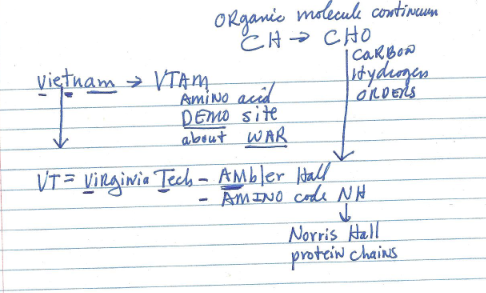 ORganic molecule continuum
CH → CHO
CARBON
Hydrogen
ORDERS
Vietnam → VTAM
AMINO acid
DEMO site
about WAR
VT = Virginia Tech - AMbler Hall
- AMINO code NH
Norris Hall
protein chains